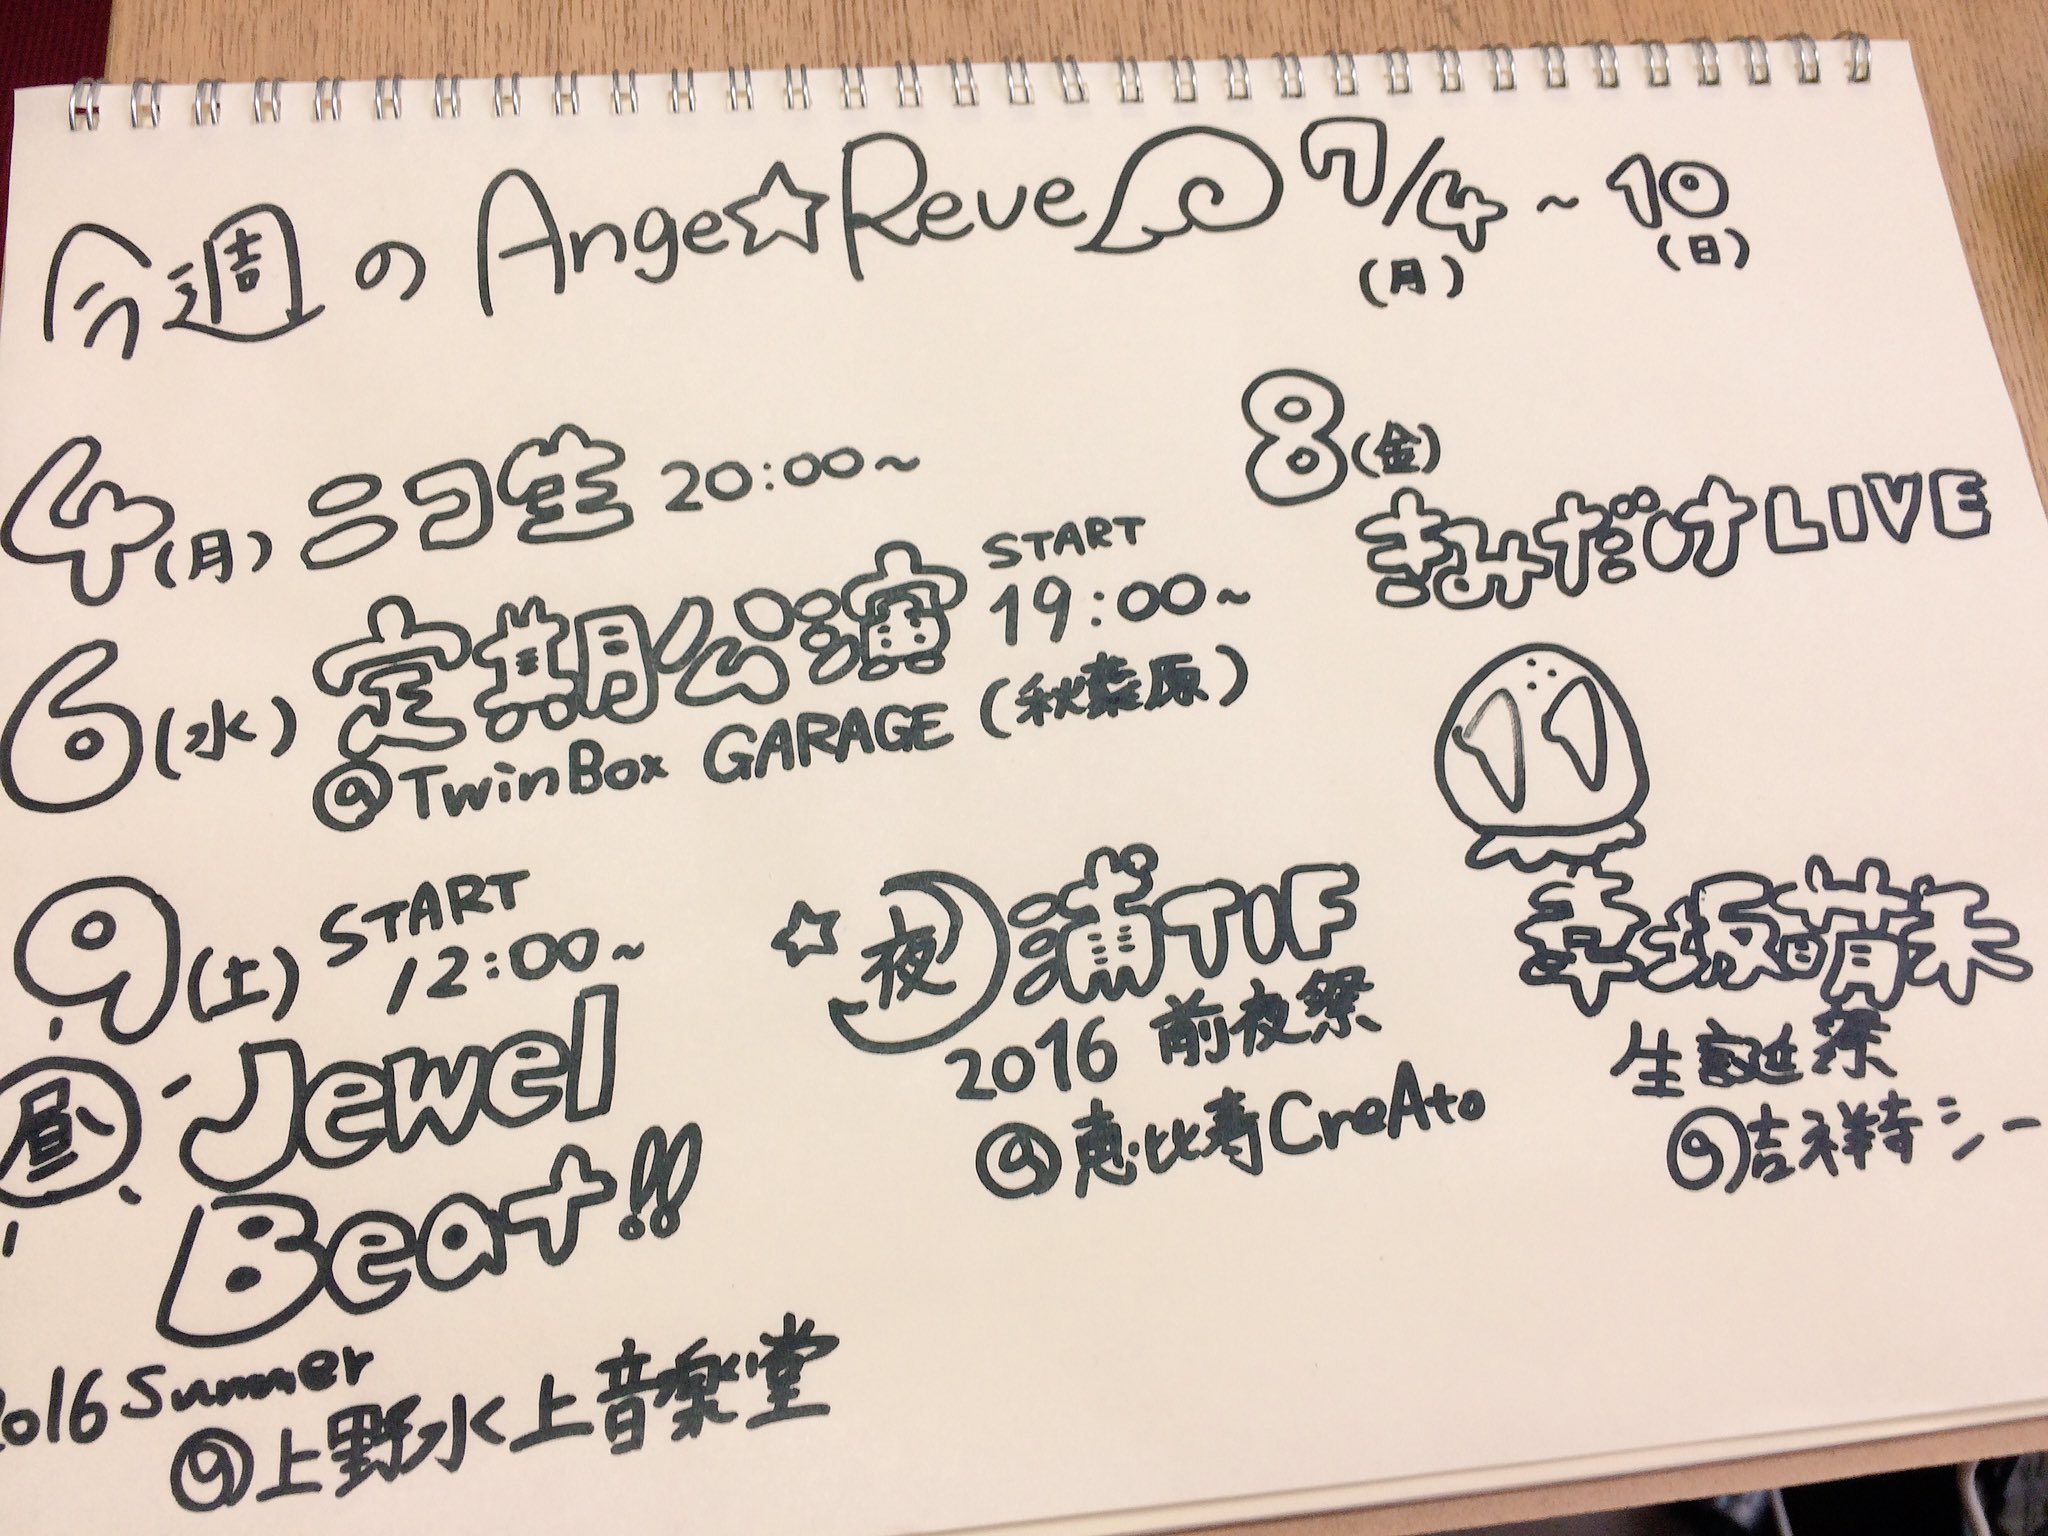 今週の Ange☆Reve 7/4(月)~10(日)
4(月) ニコ生 20:00~
6(水) 定期公演 START 19:00~
@TwinBox GARAGE (秋葉原)
8(金)
きみだけLIVE
9(土) START 12:00~
昼 Jewel
Beat!!
2016 Summer
@上野水上音楽堂
☆夜 浦TIF
2016 前夜祭
@恵比寿CreAto
11
生誕祭
@吉祥寺シー